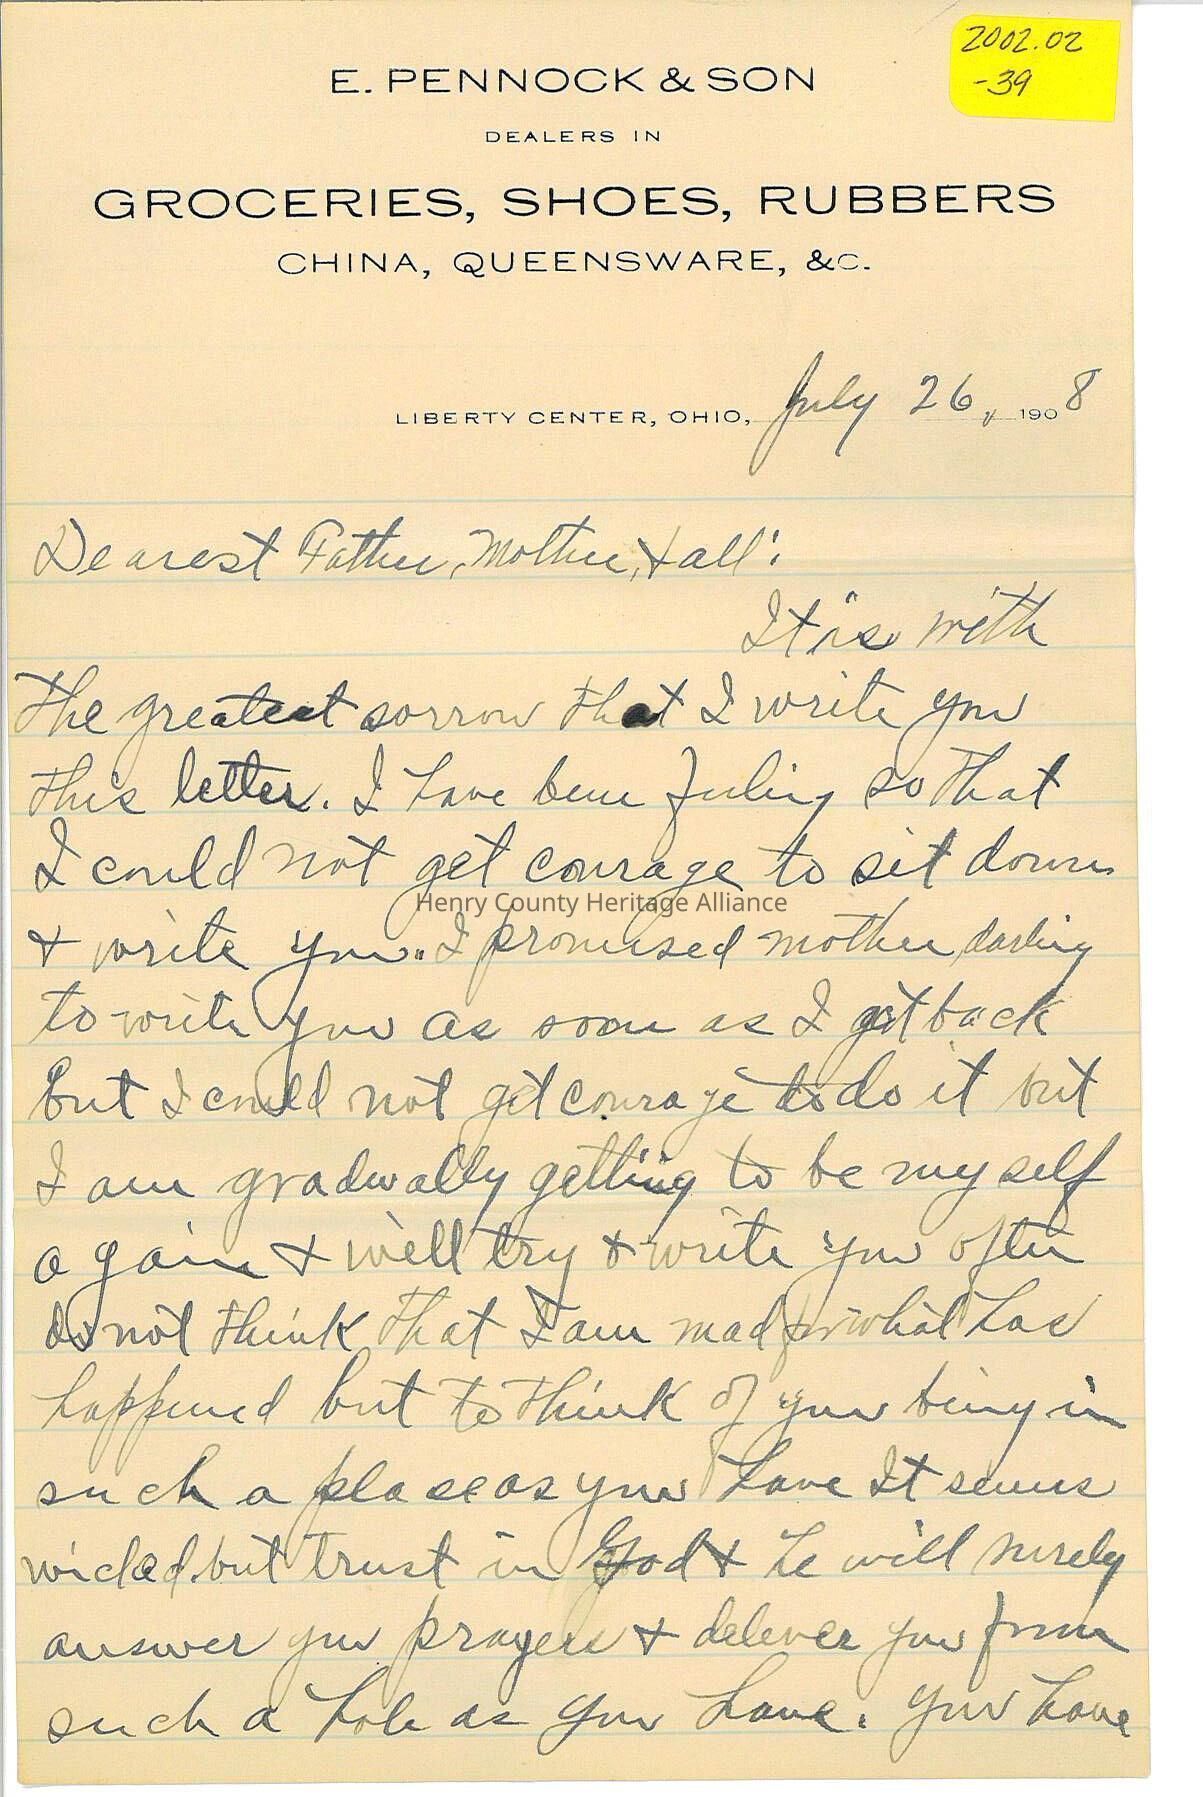 2002.02
-39
E. PENNOCK & SON
DEALERS IN
GROCERIES, SHOES, RUBBERS
CHINA, QUEENSWARE, &C.
LIBERTY CENTER, OHIO, July 26, 1908
Dearest Father, Mother, & all:
It is with
the greatest sorrow that I write you
this letter. I have been feeling so that
I could not get courage to sit down
Henry County Heritage Alliance
& write you. I promised mother darling
to write you as soon as I got back
but I could not get courage to do it but
I am gradually getting to be myself
again & will try & write you often
do not think that I am mad for what has
happened but to think of you being in
such a place as you have It seems
wicked but trust in God & he will surely
answer your prayers & delever you from
such a hole as you have. You have